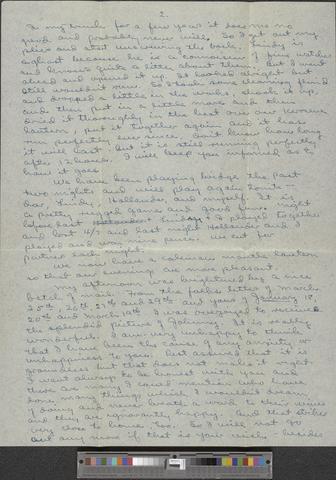 2.
in my trunk for a few years it does me no
good and probably never will. So I got out my
pliers and started unscrewing the back. Lundy is
aghast because he is a connoisseur of fine watches
and knows quite a bit about them. But I went
ahead and opened it up. It looked alright but
still wouldn't run. So I took some cleaning fluid
and dropped a little in the works, shook it up,
and then put in a little more and then
dried it thoroughly in the heat over our kerosene
lantern, put it together again and it has
run perfectly ever since. Don't know how long
it will last but it is still running perfectly
after 12 hours. I will keep you informed as to
how it goes.
We have been playing bridge the past
two nights and will play again tonite -
Lundy, Hollander, and myself. It is
a pretty rugged game and good fun. Night
before last I played together
and lost 16/ and last night Hollander and I
played and won nine pence. We cut for
partners each night.
We now have a coleman mantle lantern
so that our evenings are more pleasant.
My afternoon was brightened by a nice
batch of mail. From the folks letters of March
25th, 26th, 27th and 29th and yours of January 18,
20th and March 10th. I was overjoyed to receive
the splendid picture of Johnny. It is really
wonderful. I am very unhappy to think
that I have been the cause of any anxiety or
unhappiness to you. Rest assured that it is
groundless but that does not make it right.
I want always to be honest with you and
there are many I could mention who have
done many things which I wouldn't dream
of doing and never breath a word to their wives
and they are ignorantly happy. And that strikes
very close to home, too. So I will not go
out any more if that is your wish besides